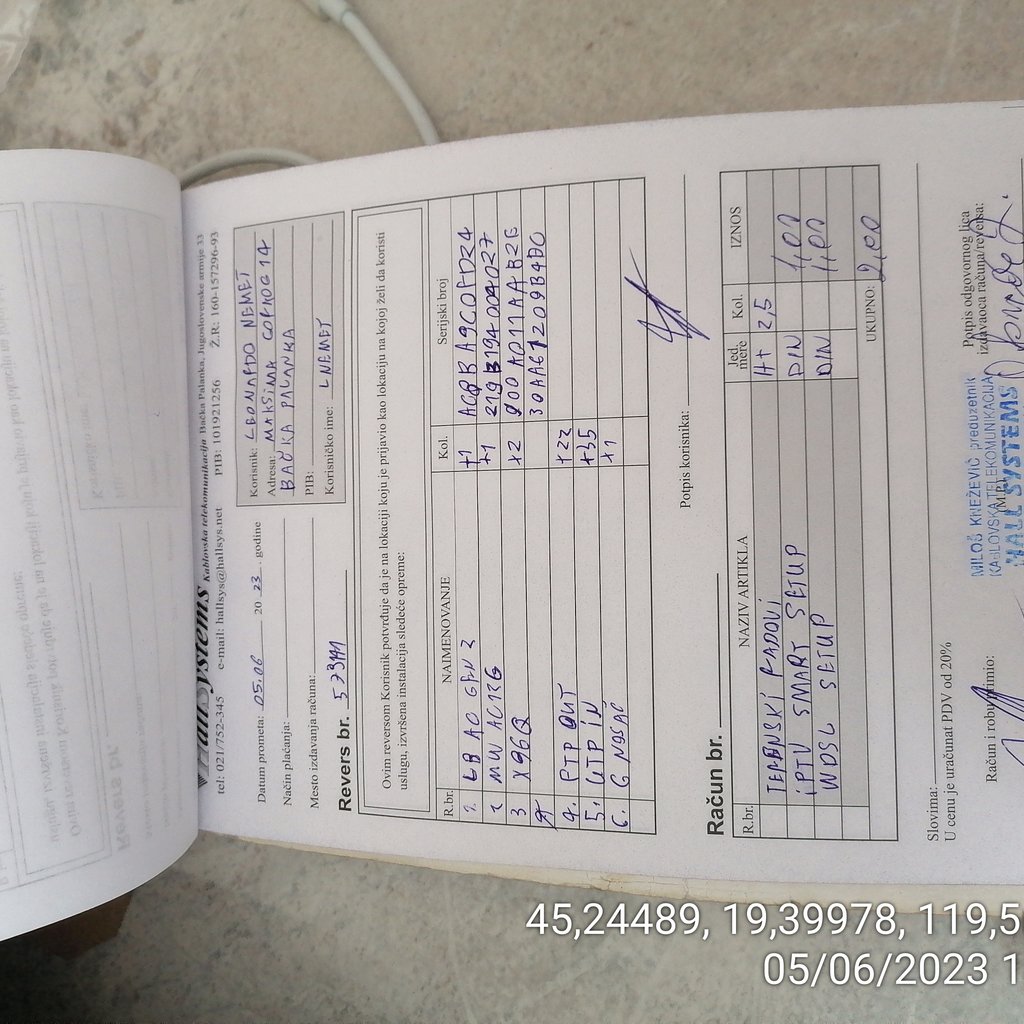 HallSystems Kablovska telekomunikacija Bačka Palanka, Jugoslovenske armije 33
tel: 021/752-345 e-mail: hallsys@hallsys.net PIB: 101921256 Ž.R: 160-157296-93
Datum prometa: 05.06 20 23 . godine
Način plaćanja:
Mesto izdavanja računa:
Korisnik: LEONARDO NEMET
Adresa: MAKSIMA GORKOG 14
BAČKA PALANKA
PIB:
Korisničko ime: LNEMET
Revers br.
Ovim reversom Korisnik potvrđuje da je na lokaciji koju je prijavio kao lokaciju na kojoj želi da koristi
uslugu, izvršena instalacija sledeće opreme:
R.br. NAIMENOVANJE Kol. Serijski broj
LB AC GEN 2 +1
MW AC12G +1 219B194004027
3 X96Q +2
4. FTP OUT +22
5. UTP IN +35
6. G NOSAČ +1
Potpis korisnika:
Račun br.
R.br. NAZIV ARTIKLA Jed. mere Kol. IZNOS
TERENSKI RADOVI H+ 2,5
IPTV SMART SETUP DIN 1,00
WDSL SETUP DIN 1,00
UKUPNO: 2,00
Slovima:
U cenu je uračunat PDV od 20%
Račun i robu primio:
M.P.
MILOŠ KNEŽEVIĆ preduzetnik
KABLOVSKA TELEKOMUNIKACIJA
HALL SYSTEMS
Potpis odgovornog lica
izdavaoca računa/reversa:
45,24489, 19,39978, 119,5
05/06/2023 1